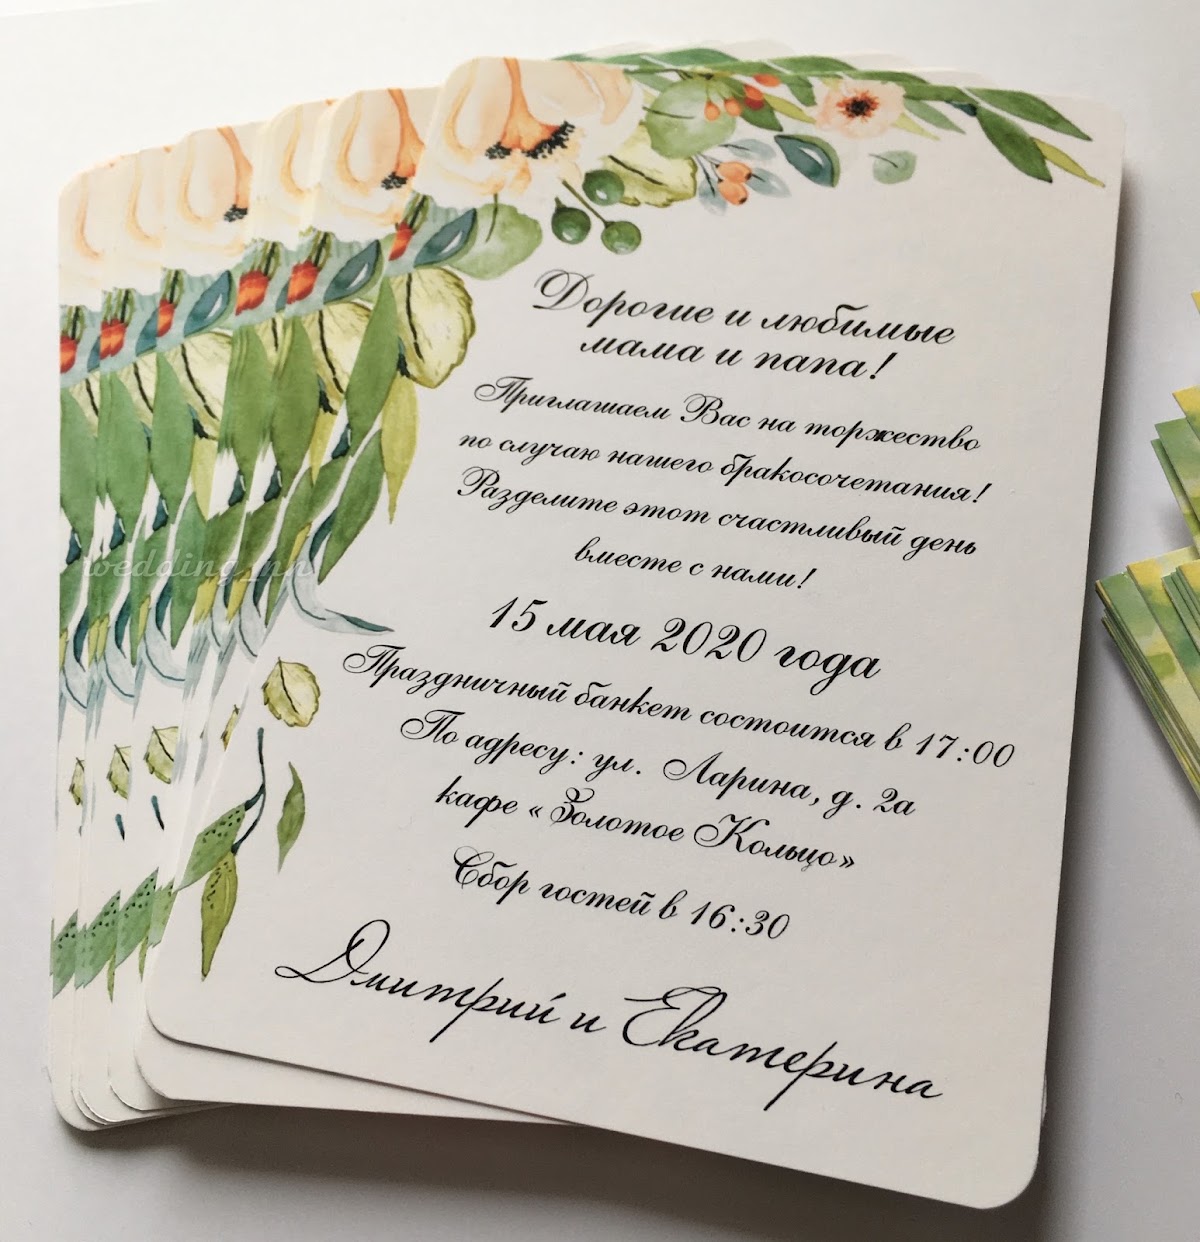 Дорогие и любимые
мама и папа!
Приглашаем Вас на торжество
по случаю нашего бракосочетания!
Разделите этот счастливый день
вместе с нами!
15 мая 2020 года
Праздничный банкет состоится в 17:00
По адресу: ул. Ларина, д. 2а
кафе «Золотое Кольцо»
Сбор гостей в 16:30
Дмитрий и Екатерина
wedding_nn